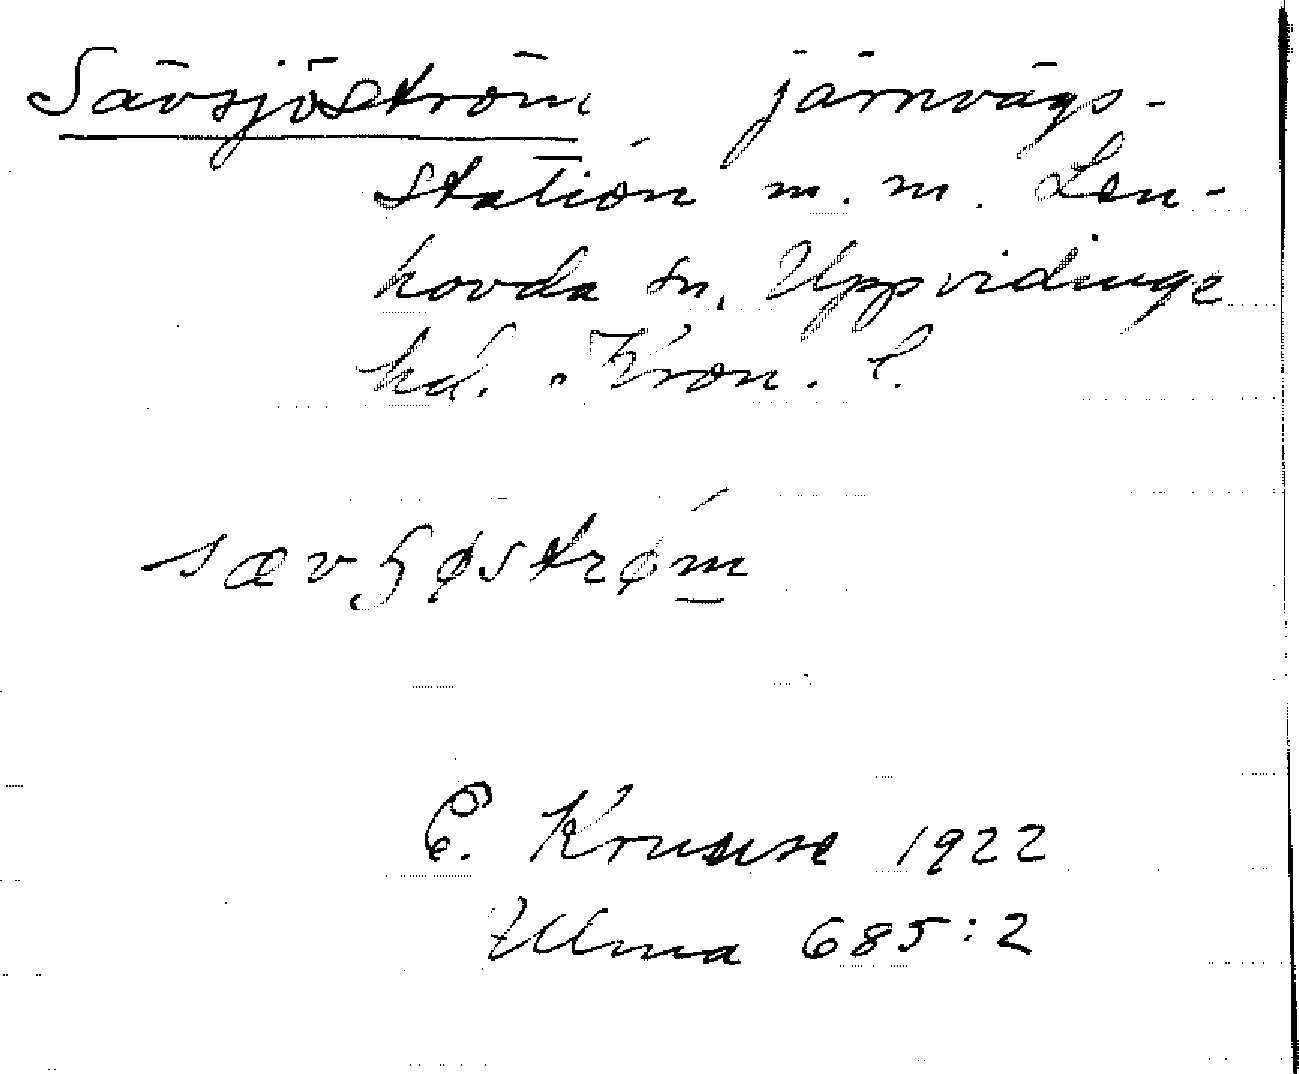 Sävsjöström järnvägs-
station m. m. Len-
hovda sn, Uppvidinge
hd. Kron. l.
sævɧøstrøm
E. Kruuse 1922
Ulma 685:2